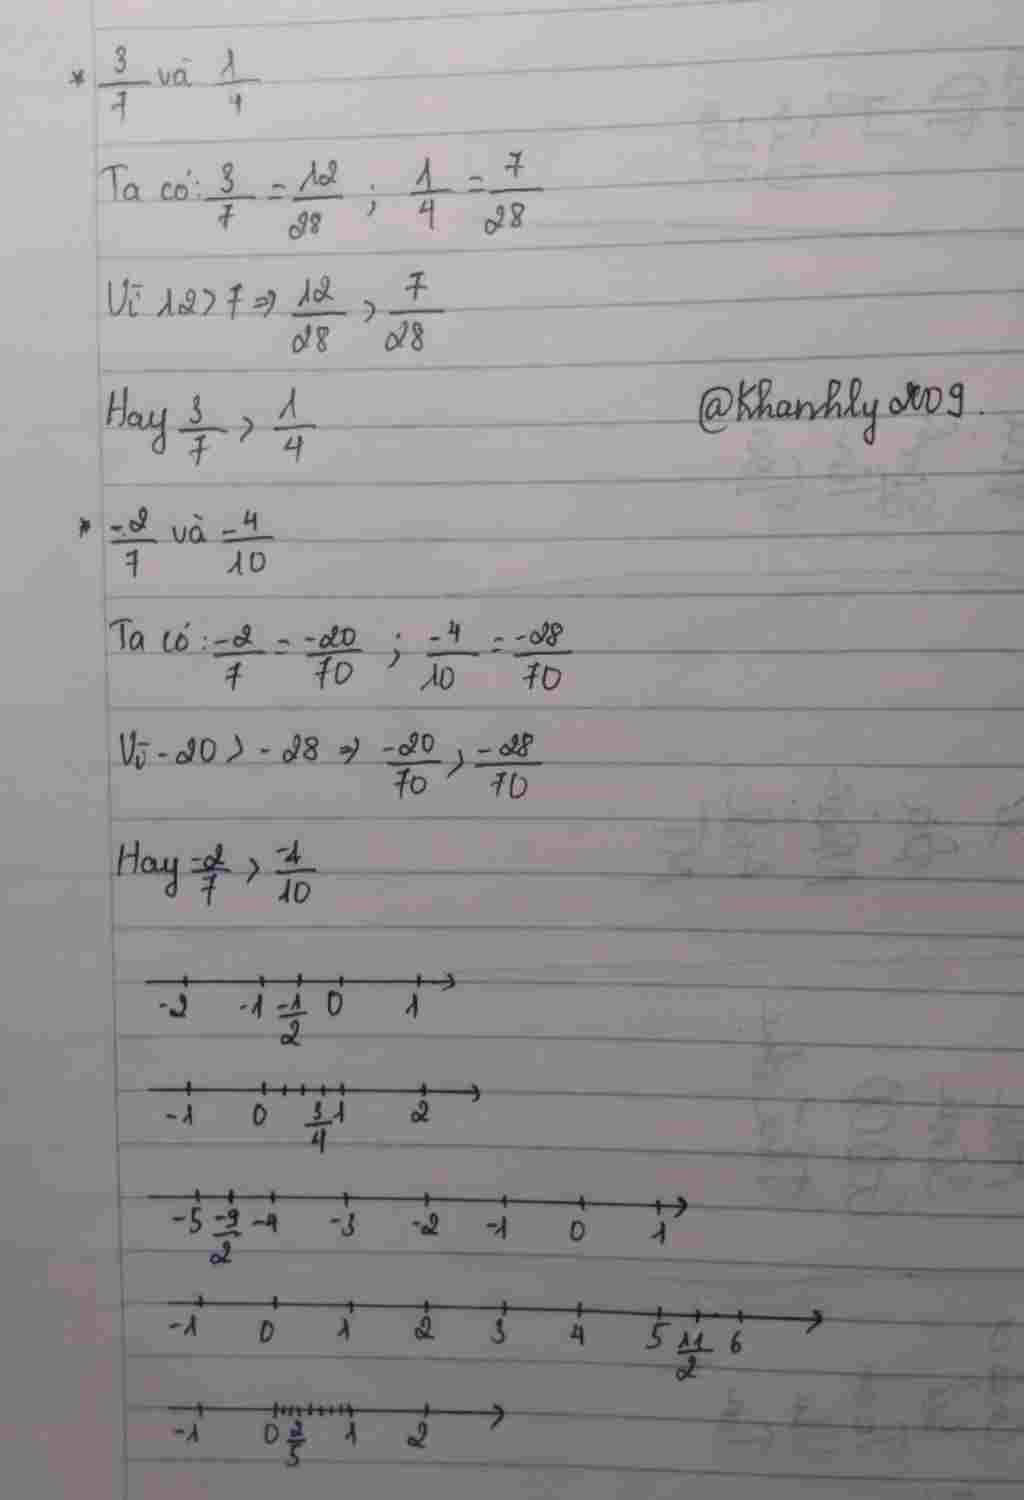 * 3/7 và 1/4
Ta có: 3/7 = 12/28 ; 1/4 = 7/28
Vì 12 > 7 => 12/28 > 7/28
Hay 3/7 > 1/4
@Khanhly2009.
* -2/7 và -4/10
Ta có: -2/7 = -20/70 ; -4/10 = -28/70
Vì -20 > -28 => -20/70 > -28/70
Hay -2/7 > -1/10
-2 -1 -1/2 0 1
-1 0 3/4 1 2
-5 -9/2 -4 -3 -2 -1 0 1
-1 0 1 2 3 4 5 11/2 6
-1 0 2/5 1 2